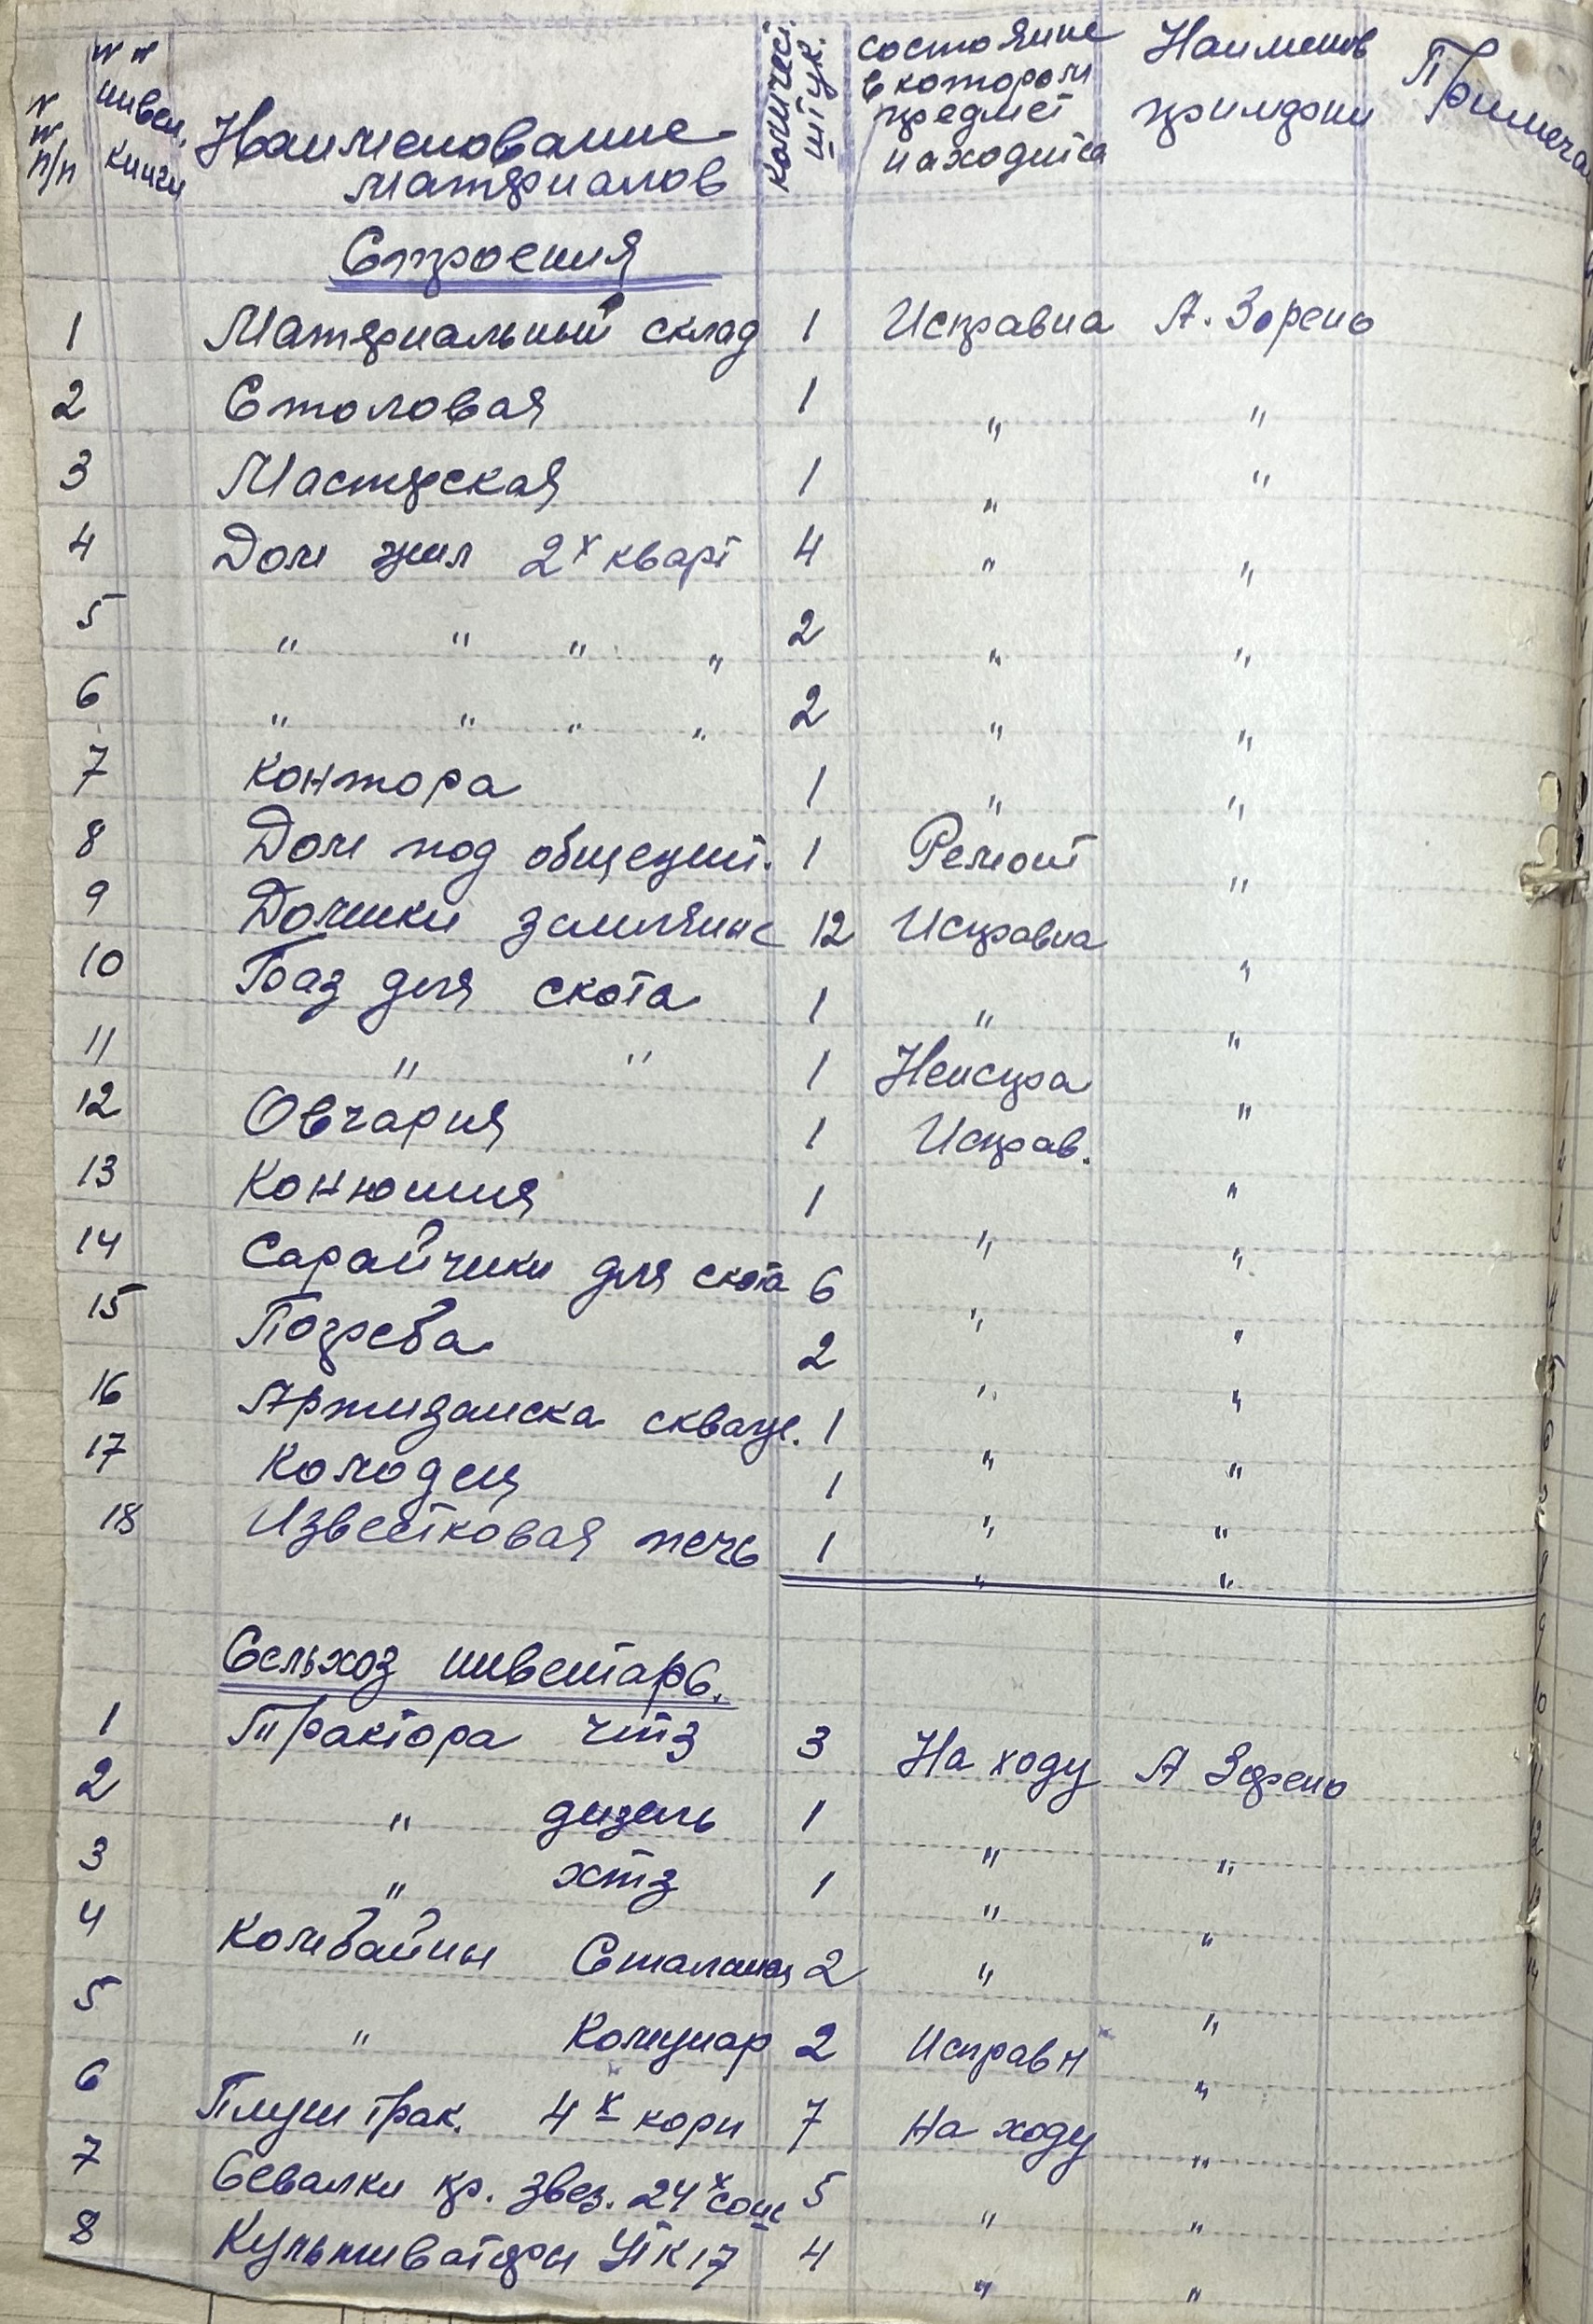 № № п/п № № инвен. книги Наименование материалов Количест. штук. состояние в котором предмет находится Наименов Примеча
Строения
1 Материальный склад 1 Исправна А. Зорень
2 Столовая 1 " "
3 Мастерская 1 " "
4 Дом жил 2х кварт 4 " "
5 " " " " 2 " "
6 " " " " 2 " "
7 Контора 1 " "
8 Дом под общежит. 1 Ремонт "
9 Домики землянк 12 Исправна "
10 Баз для скота 1 " "
11 " " 1 Неиспра "
12 Овчария 1 Исправ. "
13 Конюшня 1 " "
14 Сарайчики для скота 6 " "
15 Погреба 2 " "
16 Артизанска скваж. 1 " "
17 Колодец 1 " "
18 Известковая печь 1 " "
Сельхоз инвентарь.
1 Трактора чтз 3 На ходу А Зорень
2 " дизель 1 " "
3 " хтз 1 " "
4 Комбайны Сталинец 2 " "
5 " Комунар 2 Исправн "
6 Плуги трак. 4х корп 7 На ходу "
7 Севалки кр. звез. 24х сош 5 " "
8 Культиваторы УТК 17 4 " "